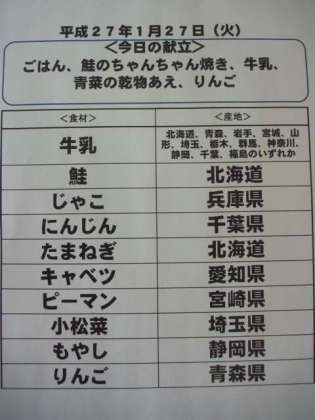 平成27年1月27日(火)
<今日の献立>
ごはん、鮭のちゃんちゃん焼き、牛乳、
青菜の乾物あえ、りんご
<食材> <産地>
牛乳 北海道、青森、岩手、宮城、山
形、埼玉、栃木、群馬、神奈川、
静岡、千葉、福島のいずれか
鮭 北海道
じゃこ 兵庫県
にんじん 千葉県
たまねぎ 北海道
キャベツ 愛知県
ピーマン 宮崎県
小松菜 埼玉県
もやし 静岡県
りんご 青森県